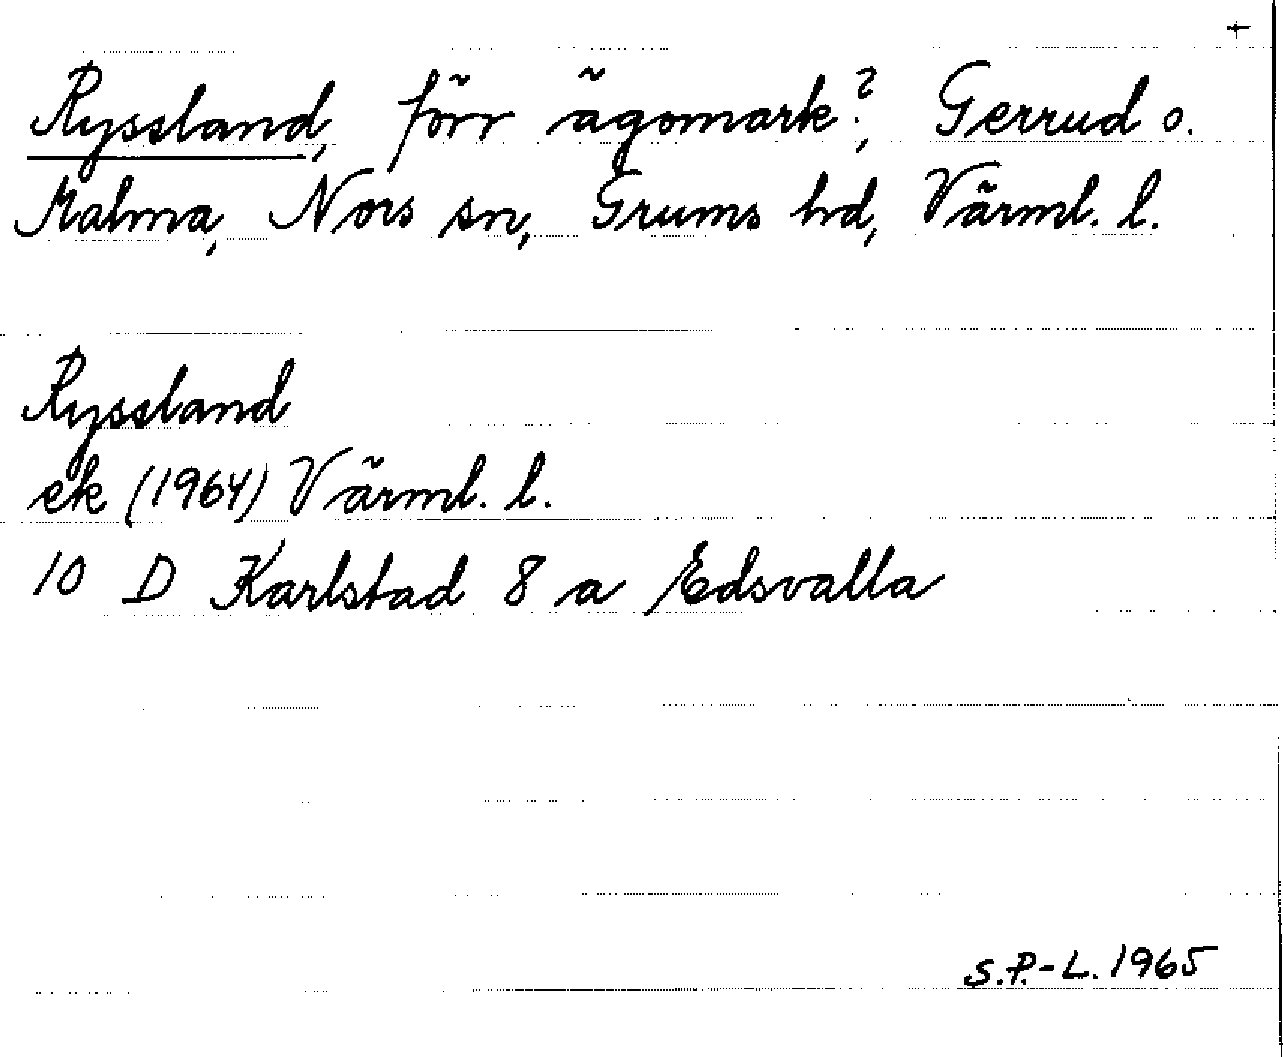 Ryssland, förr ägomark?, Gerrud o.
Malma, Nors sn, Grums hd, Värml. l.
Ryssland
ek (1964) Värml. l.
10 D Karlstad 8 a Edsvalla
S.P.-L. 1965